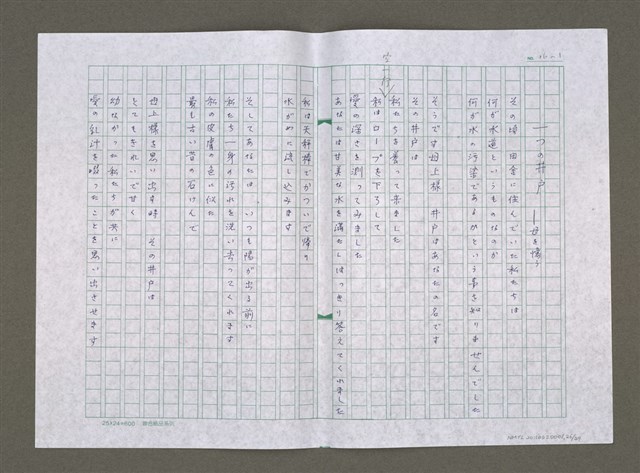 一つの井戸 ―母を憶う
その頃 田舎に住んでいた私たちは
何が水道というものなのか
何が水の汚染であるかという事も知りませんでした
そうです母上様 井戸はあなたの名です
その井戸は
私たちを養って来ました
私はロープを下ろして
愛の深さを測ってみました
あなたは甘美な水を満たしはっきり答えてくれました
私は天秤棒でかついで陣の
水がめに流し込みます
そしてあなたは いつも陽が出る前に
私たち一身の汚れを洗い去ってくれます
私の皮膚の色に似た
最も古い昔の石けんで
母上様を思い出す時 その井戸は
とてもきれいで甘く
幼なかった私たちが共に
愛の乳汁を啜ったことを思い出させます
25×24=600